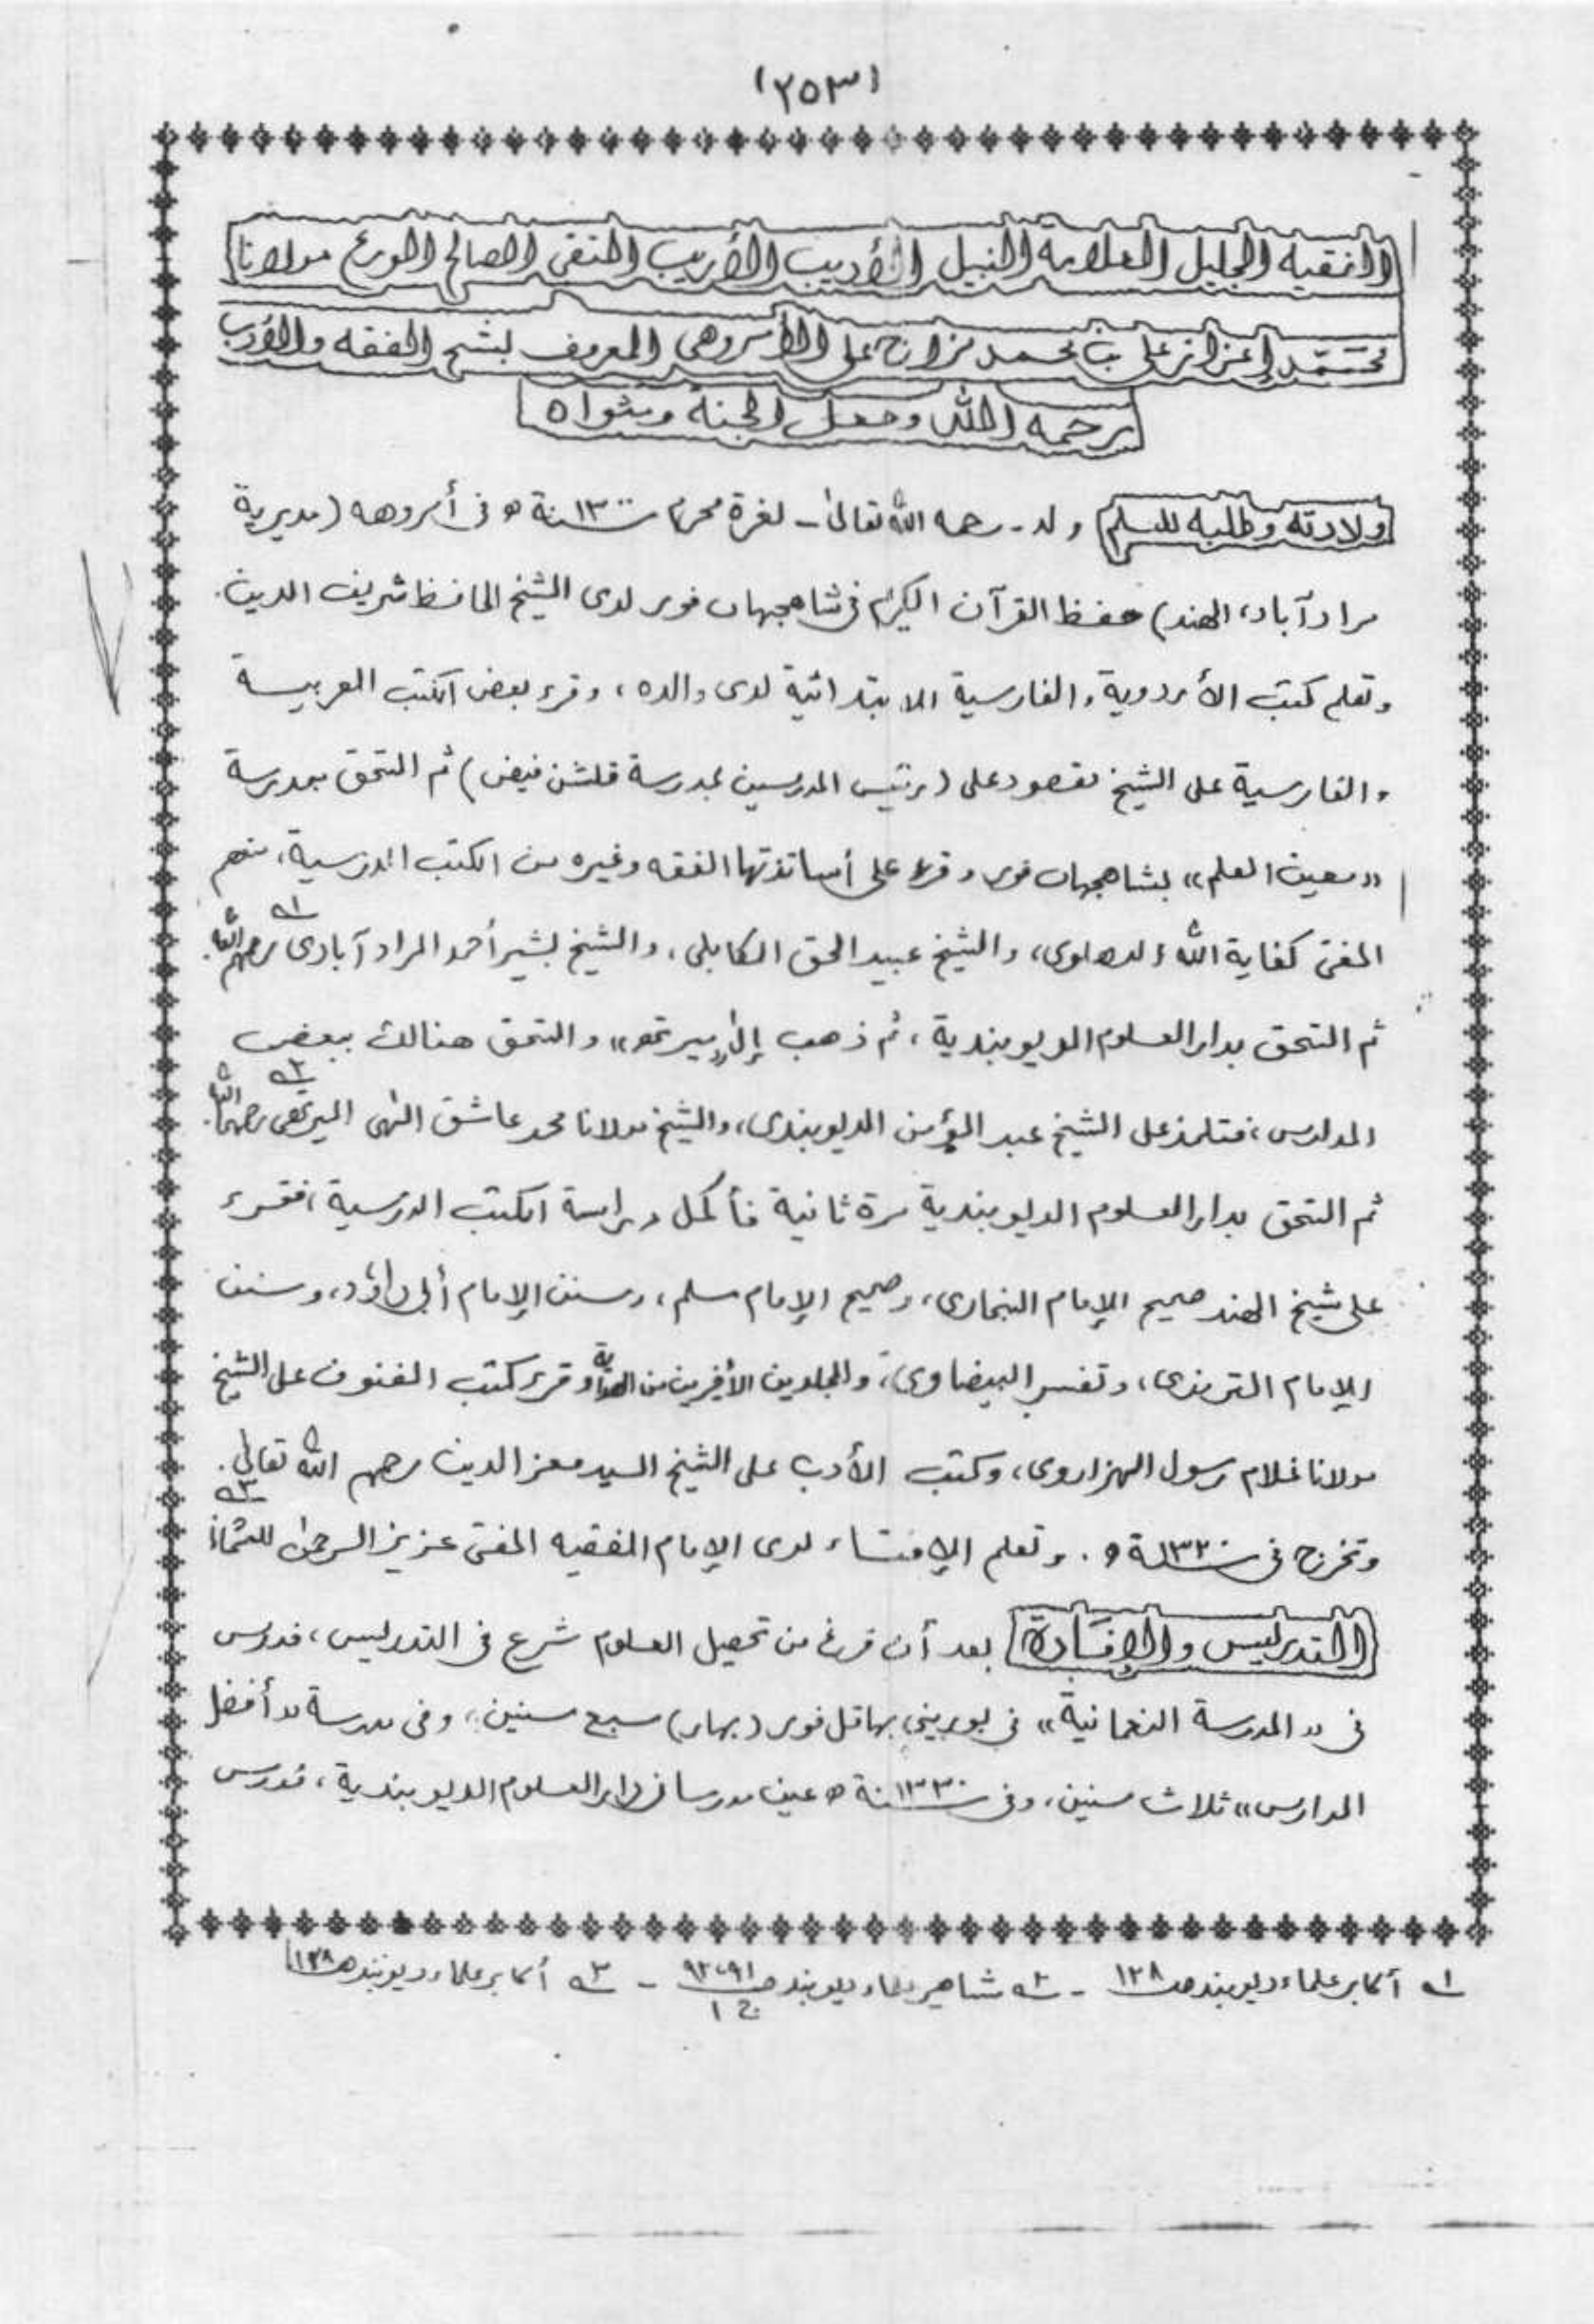 (٢٥٣)
الفقيه الجليل العلامة النبيل الأديب الأريب المتقى الصالح الورع مولانا
محمد إعزاز على بن محمد مزاج على الأمروهى المعروف بشيخ الفقه والأدب
رحمه الله وجعل الجنة مثواه
ولادته وطلبه للعلم ولد - رحمه الله تعالىٰ - لغرة محرم سنة ١٣٠٠ ه فى أمروهه (مديرية
مرادآباد، الهند) حفظ القرآن الكريم فى شاهجهان فور لدى الشيخ الحافظ شريف الدين.
وتعلم كتب الأردوية والفارسية الابتدائية لدى والده، وقرء بعض الكتب العربية
والفارسية على الشيخ مقصود على (رئيس المدرسين بمدرسة قلشن فيض) ثم التحق بمدرسة
«معين العلم» بشاهجهان فور وقرء على أساتذتها الفقه وغيره من الكتب الدرسية، منهم
المفتى كفاية الله الدهلوى، والشيخ عبيد الحق الكابلى، والشيخ بشير أحمد المرادآبادى رحمهم الله. ١ه
ثم التحق بدار العلوم الديوبندية، ثم ذهب إلىٰ «ميرتهـ» والتحق هنالك ببعض
المدارس، فتلمذ على الشيخ عبد المؤمن الديوبندى، والشيخ مولانا محمد عاشق الٰهى الميرتهى رحمهما الله. ٢ه
ثم التحق بدار العلوم الديوبندية مرة ثانية فأكمل دراسة الكتب الدرسية، فقرء
على شيخ الهند صحيح الإمام البخارى، وصحيح الإمام مسلم، وسنن الإمام أبى داؤد، وسنن
الإمام الترمذى، وتفسير البيضاوى، والمجلدين الأخيرين من الهداية وقرء كتب الفنون على الشيخ
مولانا غلام رسول الهزاروى، وكتب الأدب على الشيخ السيد معز الدين رحمهم الله تعالىٰ.
وتخرج فى سنة ١٣٢٠ ه. وتعلم الإفتاء لدى الإمام الفقيه المفتى عزيز الرحمٰن العثمانى ٣ه
التدريس والإفادة بعد أن فرغ من تحصيل العلوم شرع فى التدريس، فدرس
فى «المدرسة النعمانية» فى بورينى بهاقل فور (بهار) سبع سنين، وفى مدرسة «أفضل
المدارس» ثلاث سنين، وفى سنة ١٣٣٠ ه عين مدرسا فى دار العلوم الديوبندية، فدرس
١ه أكابر علماء ديوبند صـ ١٢٨ - ٢ه مشاهير علماء ديوبند صـ ٩٢،٩١ ج ١ - ٣ه أكابر علماء ديوبند صـ ١٢٨